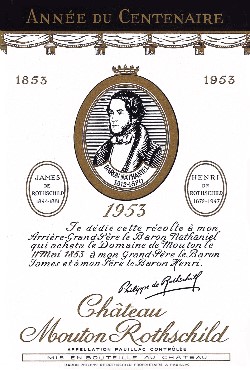 ANNÉE DU CENTENAIRE
1853 1953
BARON NATHANIEL
1812-1870
JAMES
DE
ROTHSCHILD
1844-1881
HENRI
DE
ROTHSCHILD
1872-1947
1953
Je dédie cette récolte à mon
Arrière-Grand-Père le Baron Nathaniel
qui acheta le Domaine de Mouton le
11 Mai 1853 à mon Grand-Père le Baron
James et à mon Père le Baron Henri.
Philippe de Rothschild
Château
Mouton Rothschild
APPELLATION PAUILLAC CONTRÔLÉE
MIS EN BOUTEILLE AU CHÂTEAU